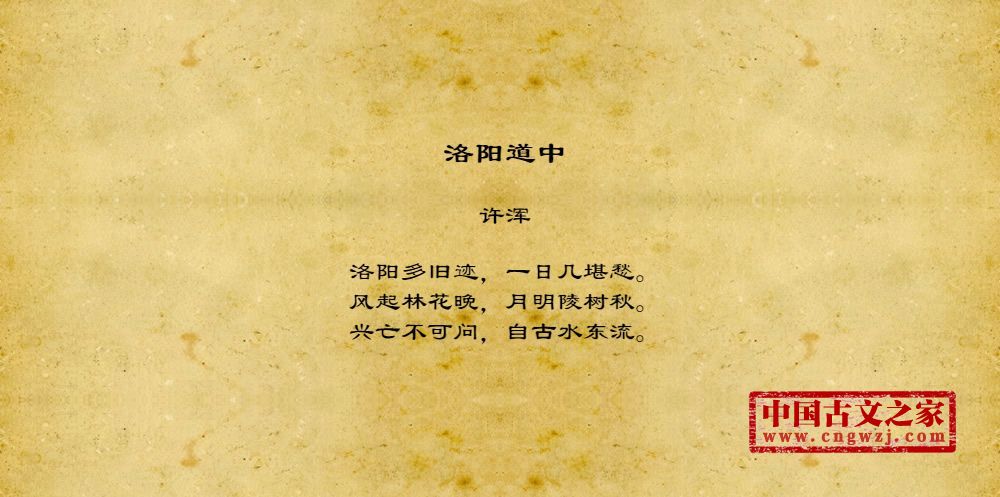 洛阳道中
许浑
洛阳多旧迹，一日几堪愁。
风起林花晚，月明陵树秋。
兴亡不可问，自古水东流。
中国古文之家
www.cngwzj.com